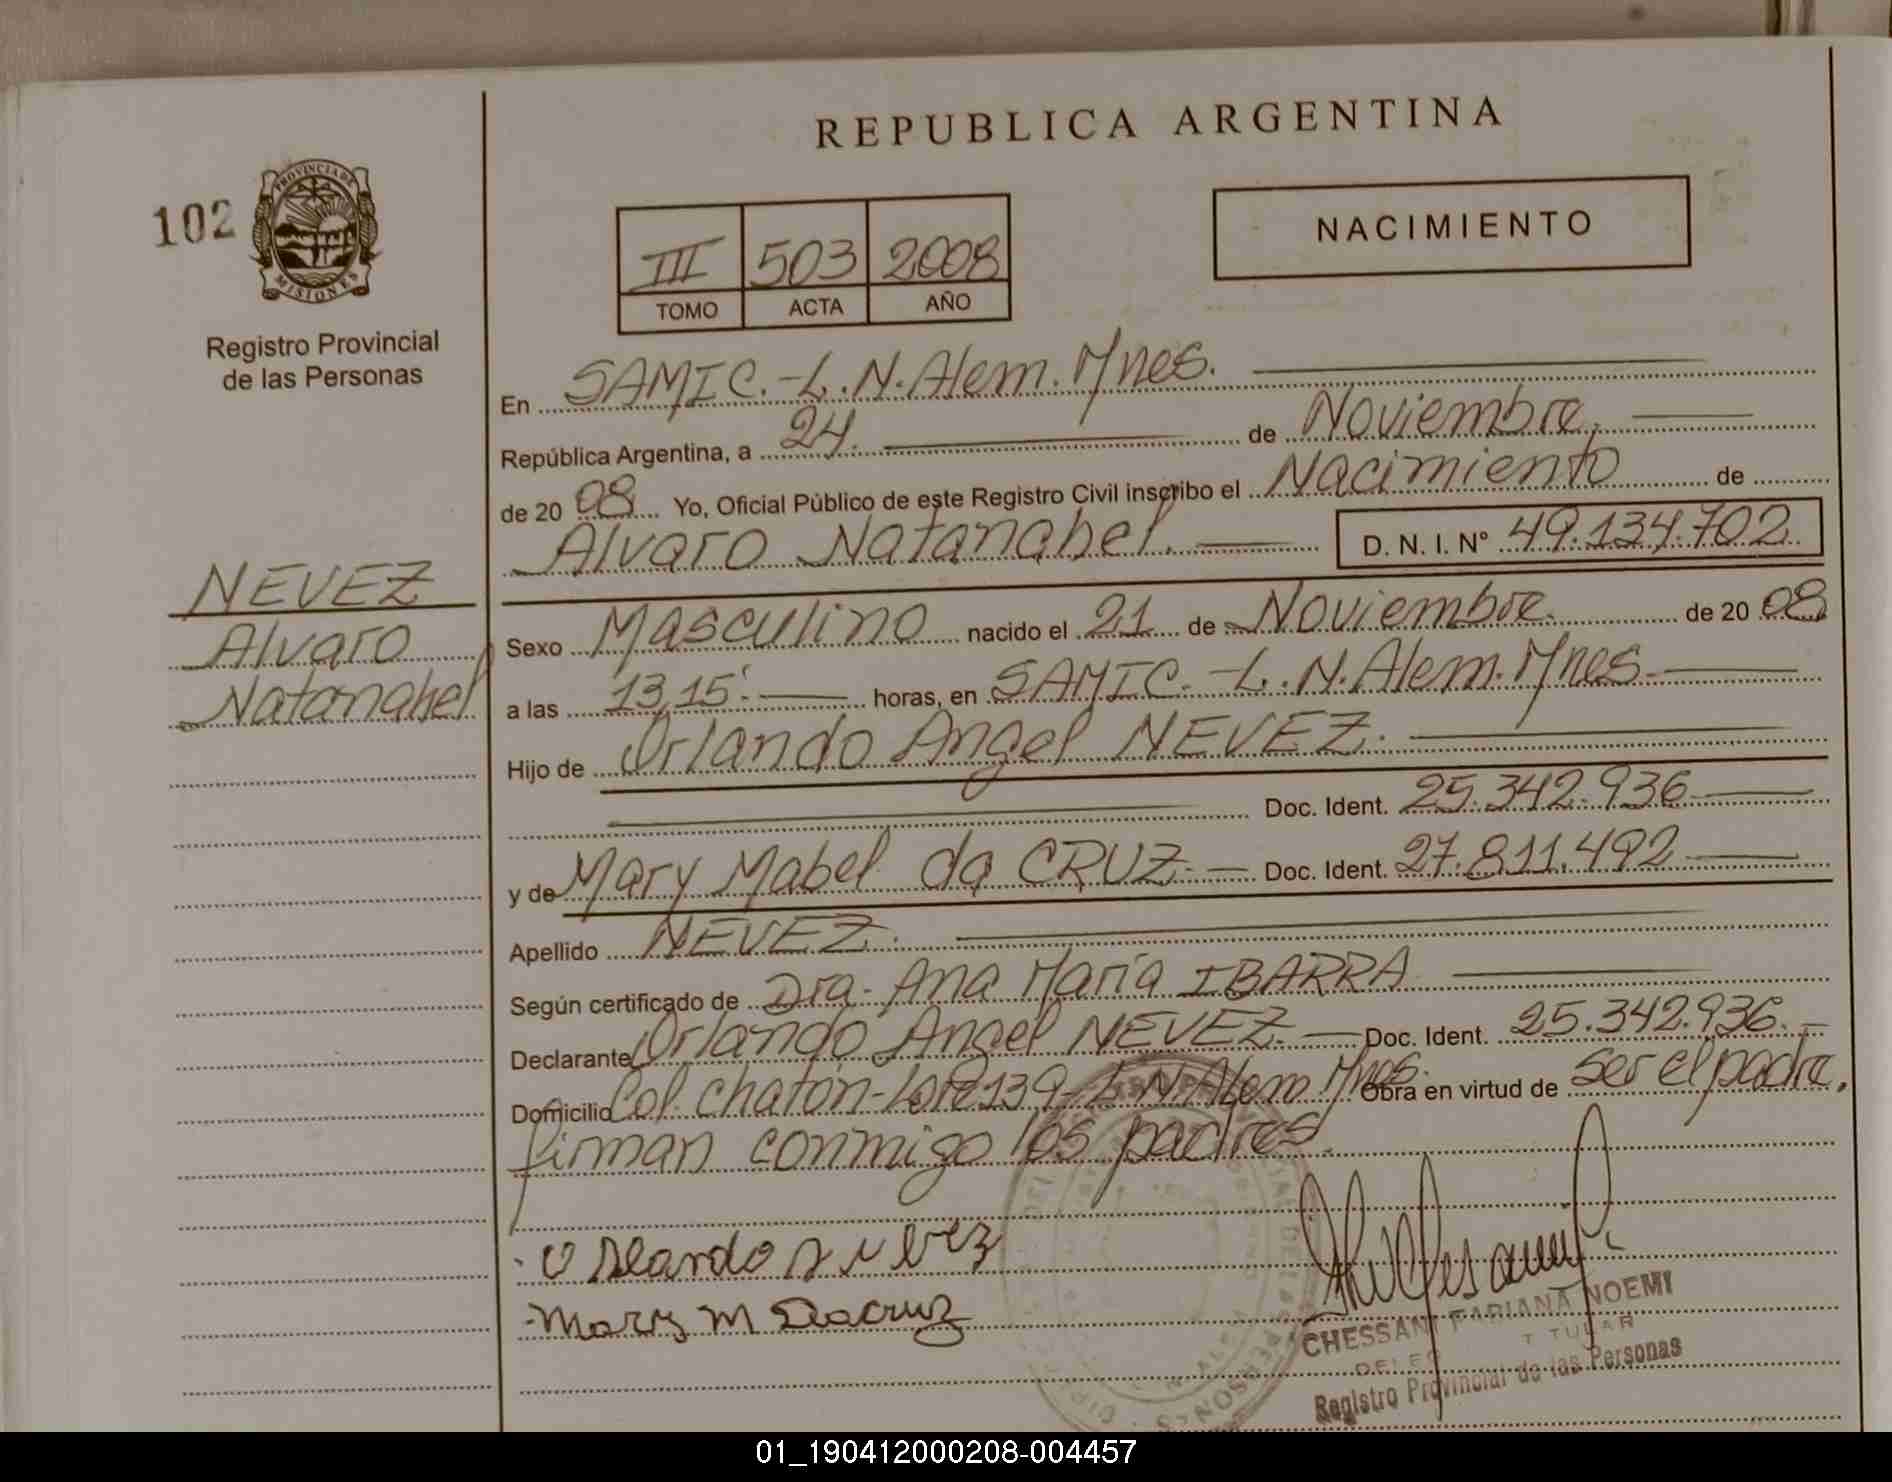 REPUBLICA ARGENTINA
102
PROVINCIA DE MISIONES
Registro Provincial
de las Personas
III 503 2008
TOMO ACTA AÑO
NACIMIENTO
En SAMIC.-L.N.Alem.Mnes.
República Argentina, a 24. de Noviembre.
de 2008 Yo, Oficial Público de este Registro Civil inscribo el Nacimiento de
Alvaro Natanahel. D. N. I. Nº 49.134.702.
NEVEZ
Alvaro
Natanahel
Sexo Masculino nacido el 21 de Noviembre. de 2008
a las 13,15'. horas, en SAMIC.-L.N.Alem.Mnes.
Hijo de Orlando Angel NEVEZ.
Doc. Ident. 25.342.936
y de Mary Mabel da CRUZ. Doc. Ident. 27.811.492
Apellido NEVEZ.
Según certificado de Dra. Ana María IBARRA
Declarante Orlando Angel NEVEZ. Doc. Ident. 25.342.936.
Domicilio Col. Chatón-Lote 139-L N Alem Mnes. Obra en virtud de ser el padre,
firman conmigo los padres.
Mary M Dacruz
CHESSANI FABIANA NOEMI
TITULAR
Registro Provincial de las Personas
01_190412000208-004457